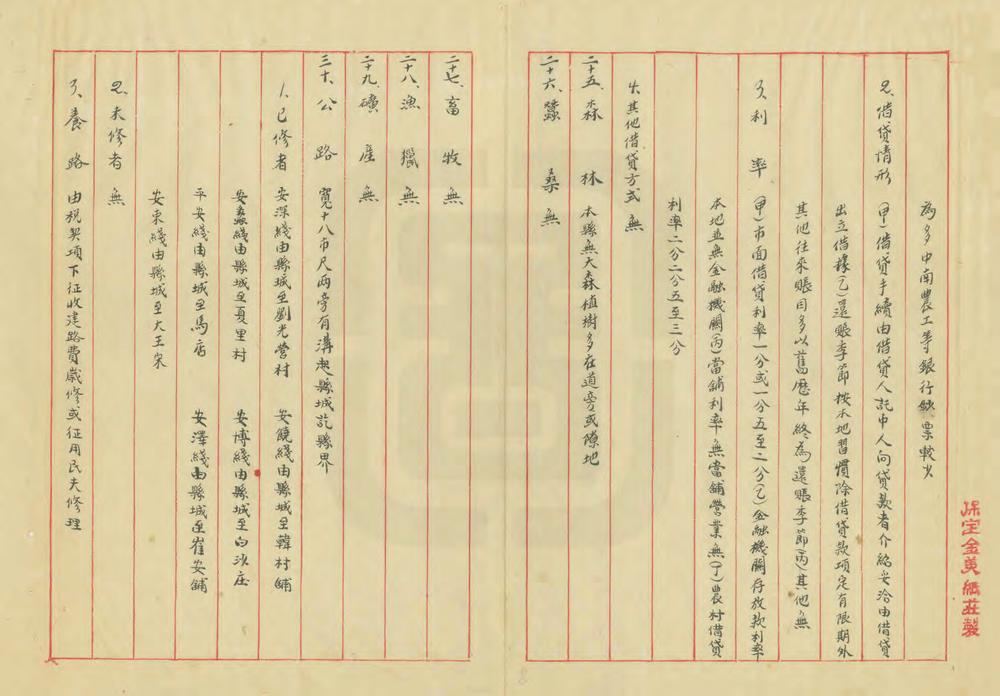 為多中南農工等銀行鈔票較少
2.借貸情形 (甲)借貸手續由借貸人託中人向貸款者介紹妥洽由借貸
出立借據(乙)還賬季節按本地習慣除借貸款項定有限期外
其他往來賬目多以舊歷年終為還賬季節(丙)其他無
3.利率 (甲)市面借貸利率一分或一分五至二分(乙)金融機關存放款利率
本地並無金融機關(丙)當鋪利率無當鋪營業無(丁)農村借貸
利率二分二分五至三分
4.其他借貸方式 無
二十五、森林 本縣無大森植樹多在道旁或隙地
二十六、蠶桑 無
二十七、畜牧 無
二十八、漁獵 無
二十九、礦產 無
三十、公路 寬十八市尺兩旁有溝起縣城訖縣界
1.已修者 安深綫由縣城至劉光營村 安饒綫由縣城至韓村鋪
安蠡綫由縣城至夏里村 安博綫由縣城至白沙庄
平安綫由縣城至馬店 安澤綫由縣城至崔安鋪
安束綫由縣城至大王宋
2.未修者 無
3.養路 由稅契項下征收建路費歲修或征用民夫修理
保定金美紙莊製